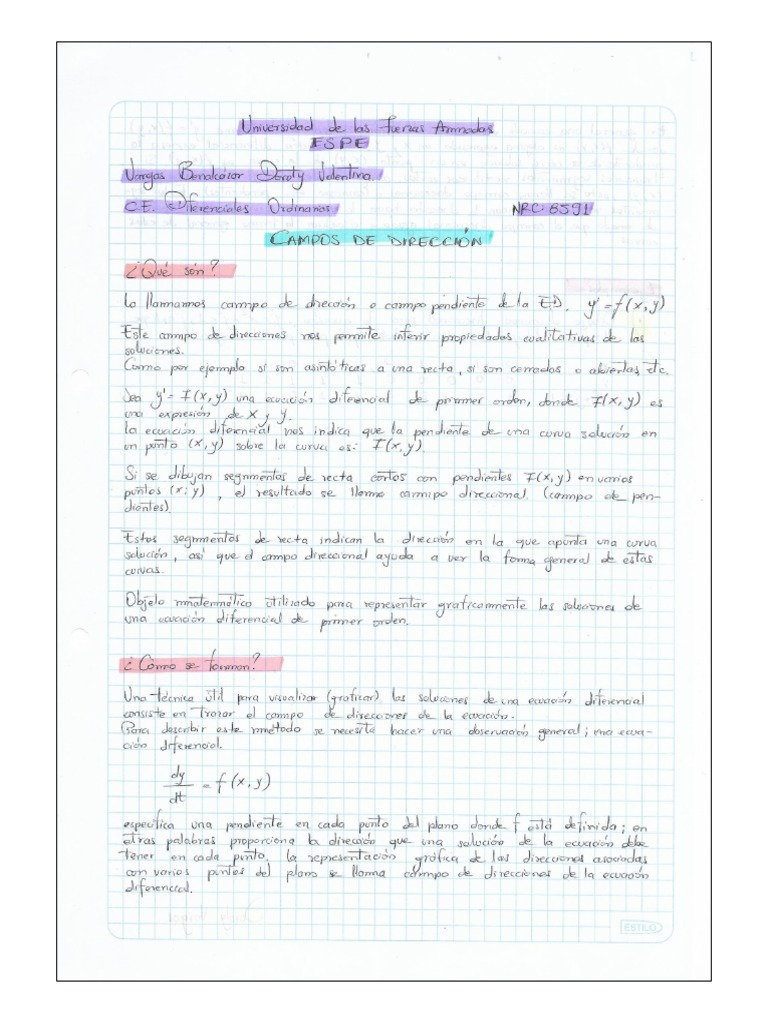 Universidad de las Fuerzas Armadas
ESPE
Vargas Benalcázar Doroty Valentina.
C.E. Diferenciales Ordinarias
NRC: 8591
CAMPOS DE DIRECCIÓN
¿Qué són?
Lo llamamos campo de dirección o campo pendiente de la ED. y' = f(x, y)
Este campo de direcciones nos permite inferir propiedades cualitativas de las
soluciones.
Como por ejemplo si son asintóticas a una recta, si son cerradas o abiertas etc.
Sea y' = F(x, y) una ecuación diferencial de primer orden, donde F(x, y) es
una expresión de x y y.
La ecuación diferencial nos indica que la pendiente de una curva solución en
un punto (x, y) sobre la curva es: F(x, y).
Si se dibujan segmentos de recta cortos con pendientes F(x, y) en varios
puntos (x; y), el resultado se llama campo direccional. (campo de pen-
dientes)
Estos segmentos de recta indican la dirección en la que apunta una curva
solución, así que el campo direccional ayuda a ver la forma general de estas
curvas.
Objeto matemático utilizado para representar graficamente las soluciones de
una ecuación diferencial de primer orden.
¿Cómo se forman?
Una técnica útil para visualizar (graficar) las soluciones de una ecuación diferencial
consiste en trazar el campo de direcciones de la ecuación.
Para describir este método se necesita hacer una observación general; una ecua-
ción diferencial.
dy/dt = f(x, y)
especifica una pendiente en cada punto del plano donde f está definida; en
otras palabras proporciona la dirección que una solución de la ecuación debe
tener en cada punto. La representación gráfica de las direcciones asociadas
con varios puntos del plano se llama campo de direcciones de la ecuación
diferencial.
ESTILO